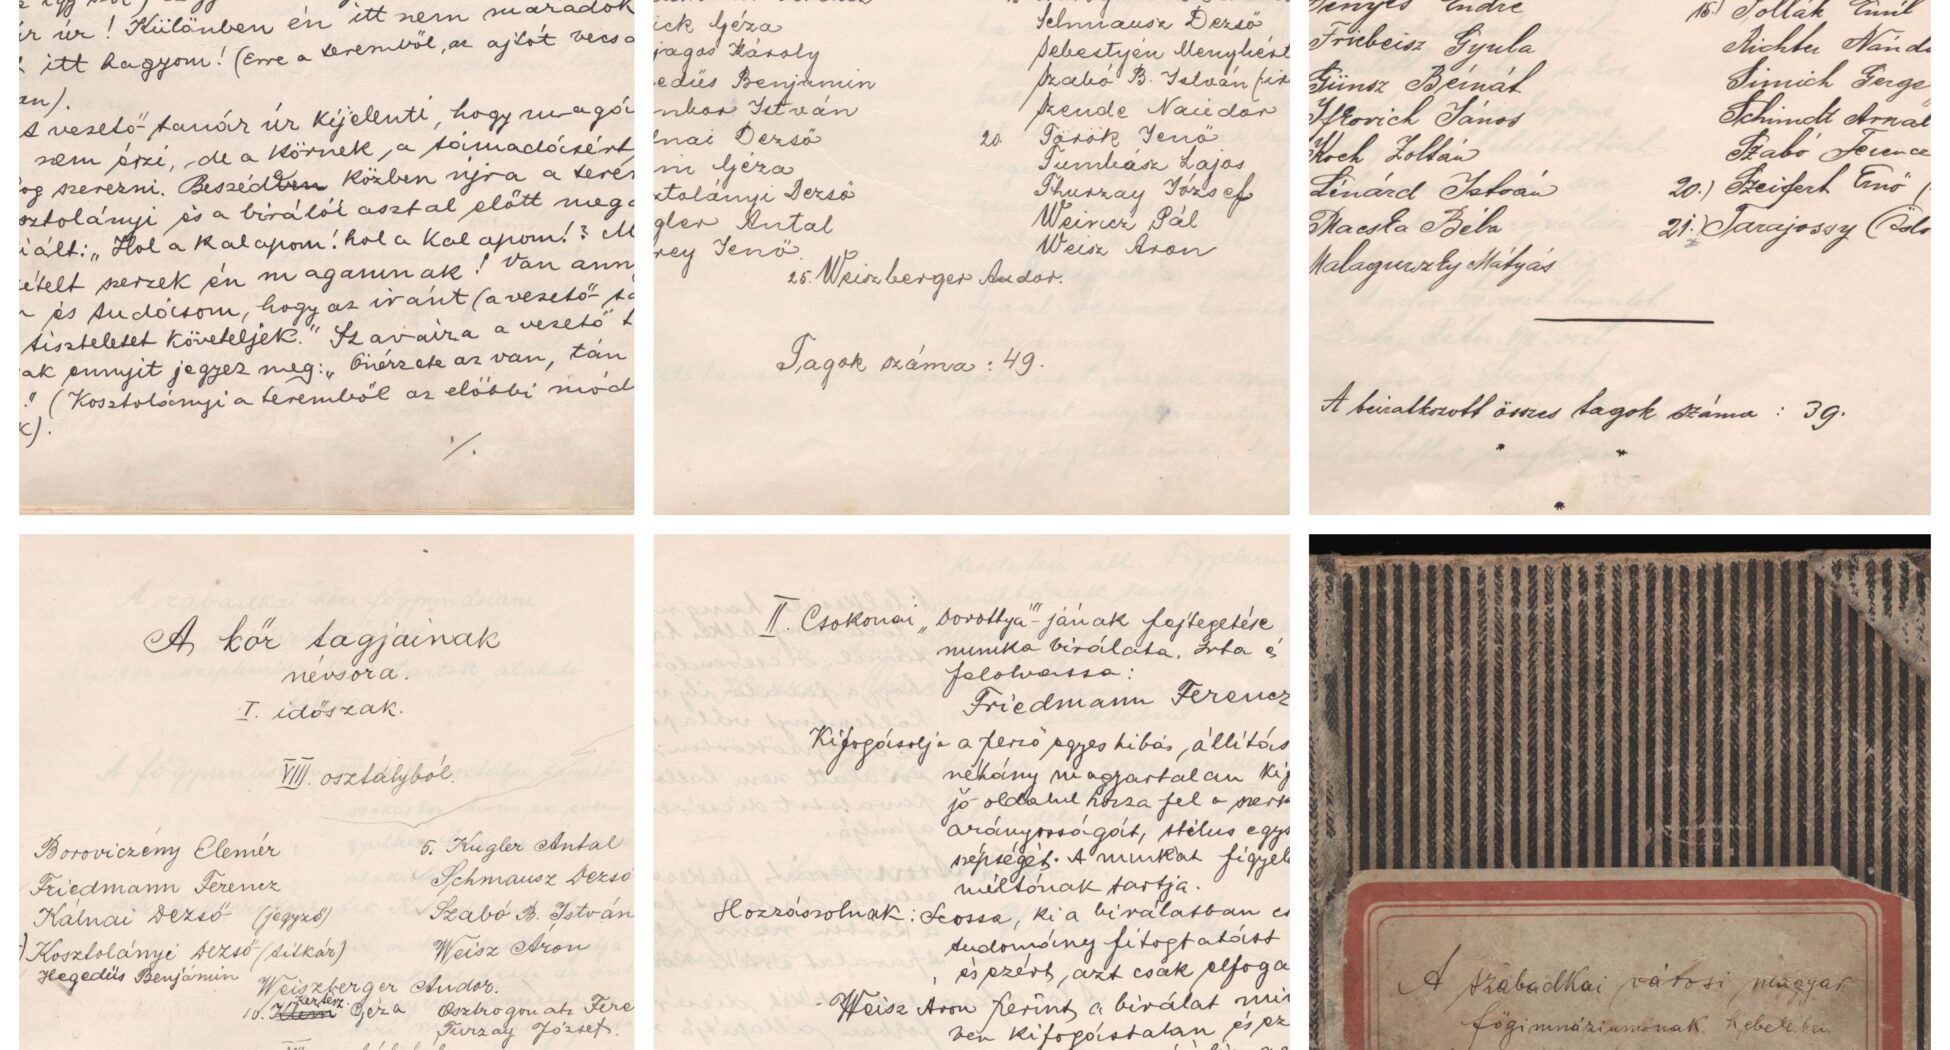 úr úr! Különben én itt nem maradok
itt hagyom! (Erre a teremből, az ajtót
A vezető-tanár úr kijelenti, hogy magá
nem érzi, de a körnek, a támadásért
og szerezni. Beszéd közben újra a terem
sztolányi és a birálói asztal előtt meg
iált: „Hol a kalapom! hol a kalapom!? M
ételt szerzek én magamnak! Van ann
és tudásom, hogy az iránt (a vezető-ta
tiszteletet követeljek." Szavaira a vezető t
ak ennyit jegyez meg: „Önérzete az van, tán
." (Kosztolányi a teremből az előbbi mód
k).
./.
ick Géza
jagos Károly
edüs Benjamin
nbor István
nai Dezső
ni Géza
ztolányi Dezső
gler Antal
rey Jenő
Schmausz Dezső
Sebestyén Menyhért
Szabó B. István
Szende Nándor
20. Török Jenő
Tumbász Lajos
Thurzay József
Weincz Pál
Weisz Áron
25. Weiszberger Andor.
Tagok száma: 49.
Fenyes Endre
Friebeisz Gyula
Günsz Bernát
Iffkovich János
Koch Zoltán
Lénárd István
Macska Béla
Malagurszky Mátyás
15.) Pollák Emil
Richter Nándo
Simich Gerge
Schmidt Arnol
Szabó Ference
20.) Szeifert Ernő (
21.) Tarajossy (
A beiratkozott összes tagok száma: 39.
A kör tagjainak
névsora.
I. időszak.
VIII. osztályból.
Boroviczény Elemér
Friedmann Ferencz
Kálnai Dezső (jegyző)
Kosztolányi Dezső (titkár)
Hegedüs Benjámin
5. Kugler Antal
Schmausz Dezső
Szabó B. István
Weisz Áron
Weiszberger Andor.
10. Kertész Géza
Osztrogonatz Fere
Turzay József.
II. Csokonai „Dorottyá"-jának fejtegetése
munka birálata. Irta é
felolvassa:
Friedmann Ferencz
Kifogásolja a szerző egyes hibás állitás
néhány magyartalan kif
jó oldalul hozza fel a szerk
arányosságát, stilus egys
szépségét. A munkát figyel
méltónak tartja.
Hozzászolnak: Scossa, ki a birálatban
tudomány fitogtatást
és ezért, azt csak elfoga
Weisz Áron szerint a birálat min
ben kifogástalan és ez
A szabadkai városi magyar
főgimnáziumának kebelében